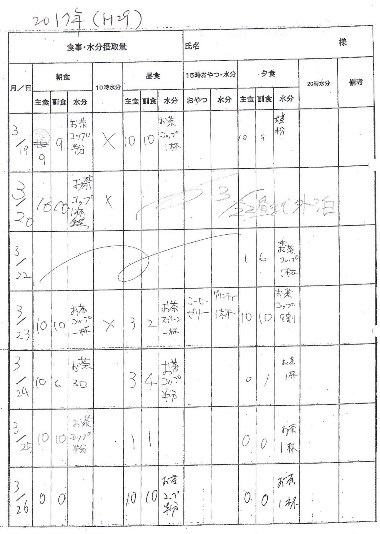 2017年 (H29)
食事・水分摂取量 氏名 様
月/日 朝食 10時水分 昼食 15時おやつ・水分 夕食 20時水分 備考
主食 副食 水分 主食 副食 水分 おやつ 水分 主食 副食 水分
3/19 9 9 お茶コップ半分 × 10 10 お茶コップ1杯 10 9
3/20 10 10 お茶コップ × 3/22昼まで外泊
3/22 1 6 お茶コップ1杯
3/23 10 10 お茶コップ一杯 × 3 2 お茶 一杯 コーヒーゼリー 1杯 10 10 お茶コップ8割
3/24 10 6 お茶30 3 4 お茶コップ半分 0 1 お茶1杯
3/25 10 10 お茶コップ半分 1 1 0 0 お茶1杯
3/26 0 0 10 10 お茶コップ半分 0 0 お茶1杯